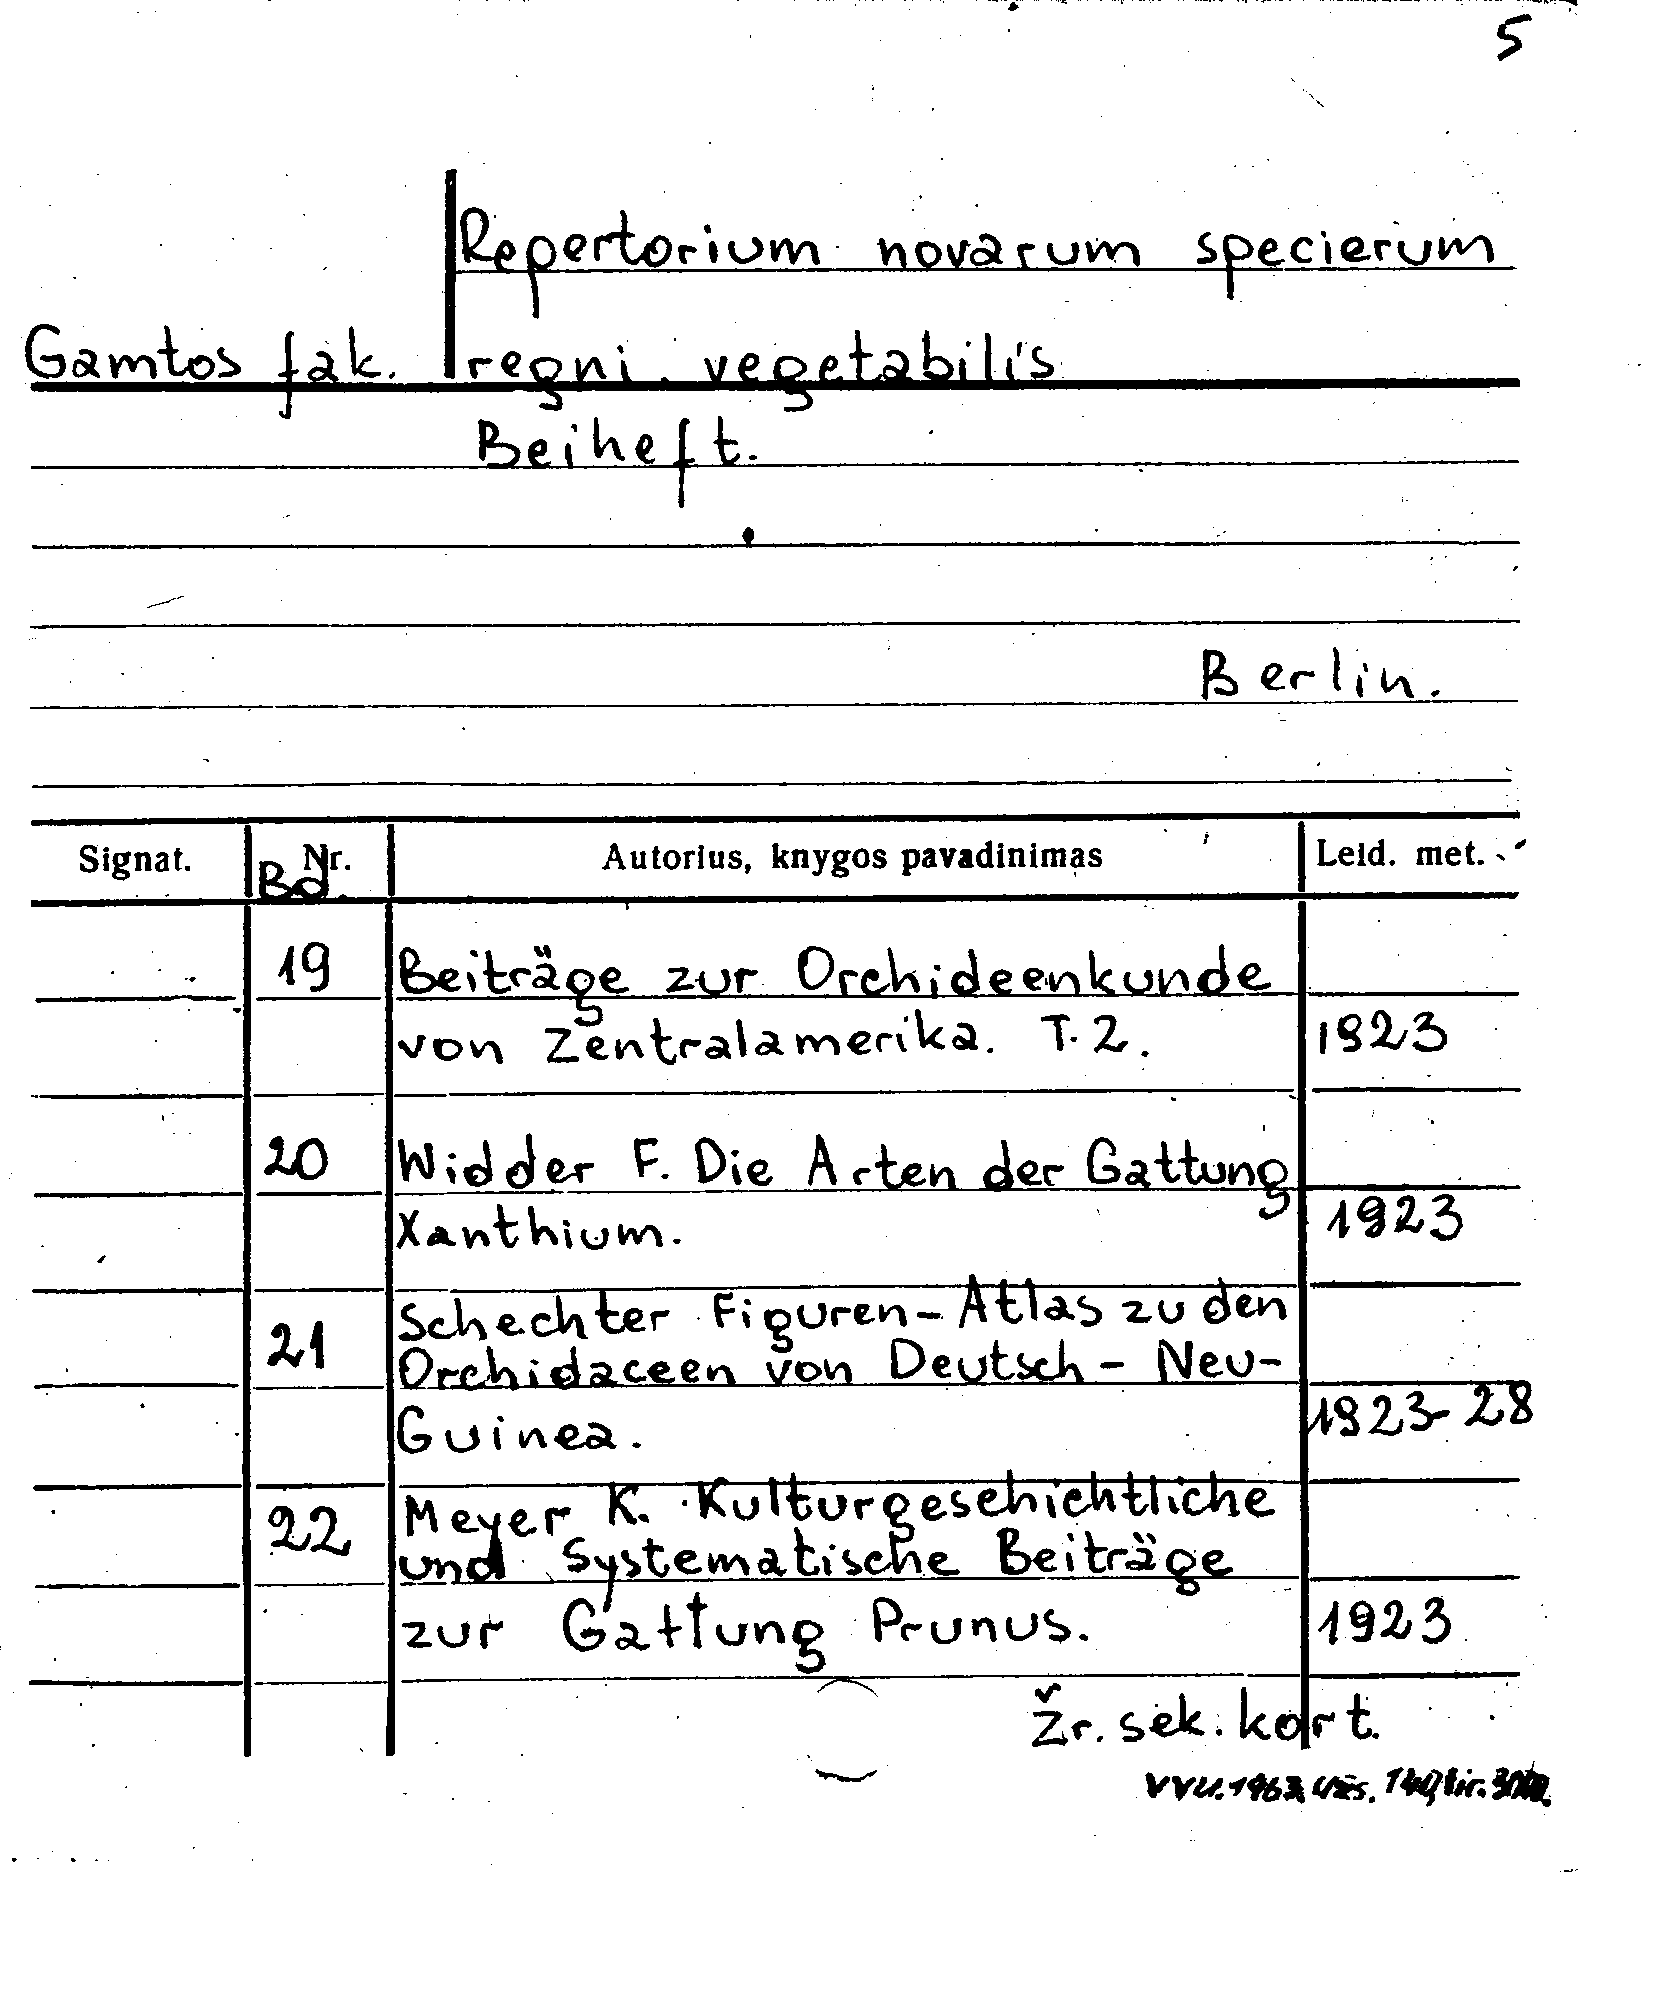 5
Repertorium novarum specierum
Gamtos fak. regni vegetabilis
Beiheft.
Berlin.
Signat. Nr. Bd. Autorius, knygos pavadinimas Leid. met.
19 Beiträge zur Orchideenkunde
von Zentralamerika. T. 2. 1923
20 Widder F. Die Arten der Gattung
Xanthium. 1923
Schechter Figuren-Atlas zu den
21 Orchidaceen von Deutsch-Neu-
Guinea. 1923-28
Meyer K. Kulturgeschichtliche
22 und Systematische Beiträge
zur Gattung Prunus. 1923
Žr. sek. kort.
VVU. 1963. Užs. tir.